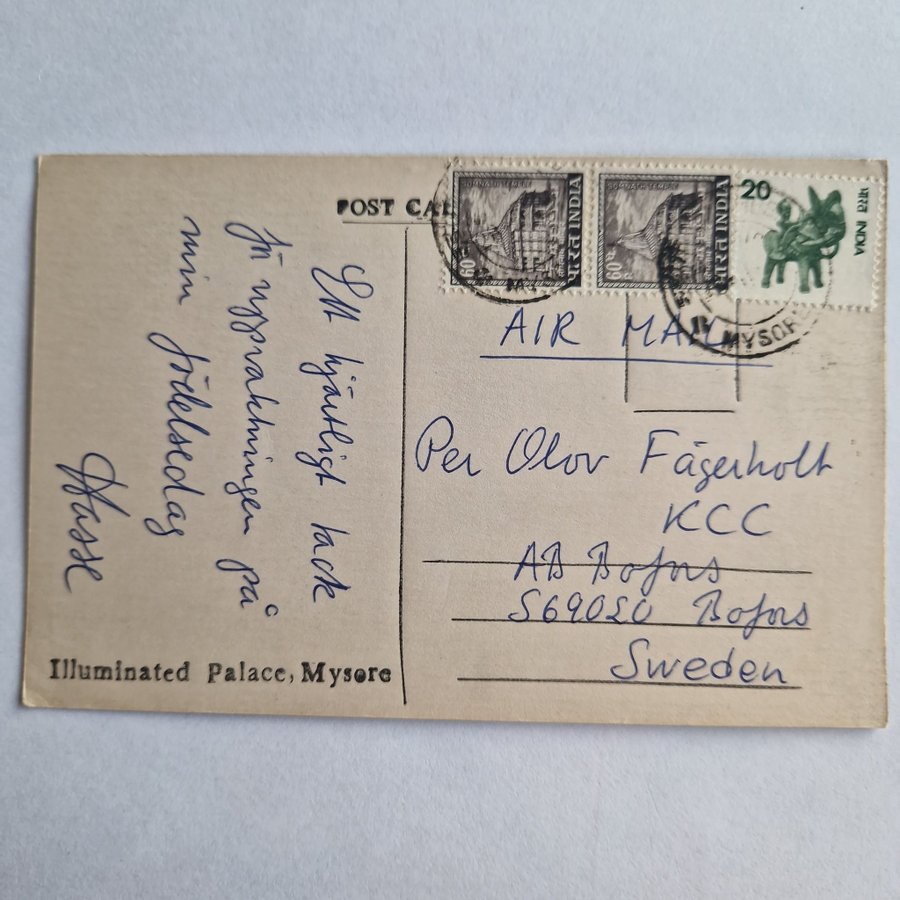 POST CAR
SOMNATH TEMPLE
60
भारत INDIA
SOMNATH TEMPLE
60
भारत INDIA
20
भारत INDIA
MYSORE
AIR MAIL
Ett hjärtligt tack
för uppvaktningen på
min födelsedag
Hasse
Per Olov Fägerholt
KCC
AB Bofors
S69020 Bofors
Sweden
Illuminated Palace, Mysore